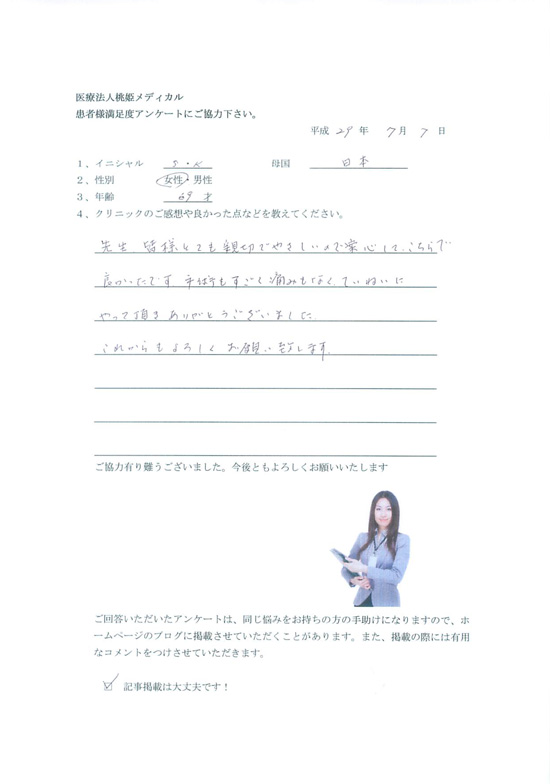 医療法人桃姫メディカル
患者様満足度アンケートにご協力下さい。
平成 29 年 7 月 7 日
1、イニシャル S・K 母国 日本
2、性別 女性・男性
3、年齢 69 才
4、クリニックのご感想や良かった点などを教えてください。
先生 皆様とても親切でやさしいので安心して、こちらで
良かったです 手術もすごく痛みもなく、ていねいに
やって頂き ありがとうございました。
これからもよろしく お願い致します。
ご協力有り難うございました。今後ともよろしくお願いいたします
ご回答いただいたアンケートは、同じ悩みをお持ちの方の手助けになりますので、ホ
ームページのブログに掲載させていただくことがあります。また、掲載の際には有用
なコメントをつけさせていただきます。
☑ 記事掲載は大丈夫です！